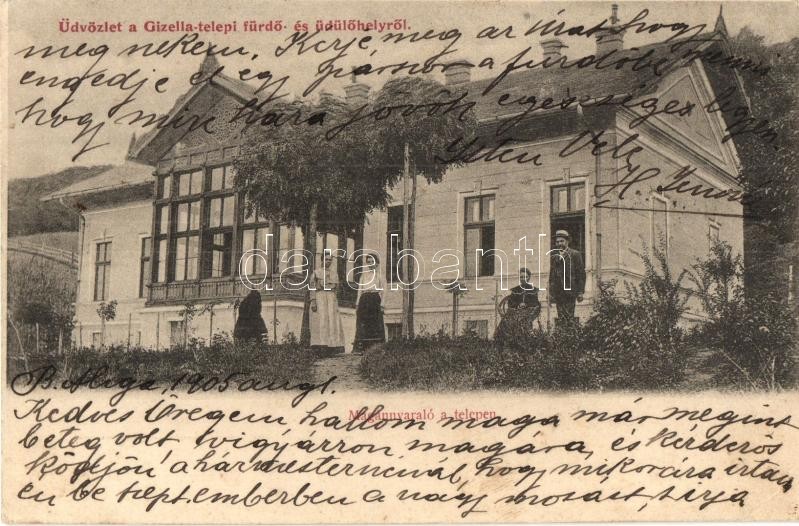 Üdvözlet a Gizella-telepi fürdő- és üdülőhelyről.
meg nekem. Kérje meg az Urat hogy
engedje el egy párszor a fürdőbe menni
hogy mire haza jövök egészséges legyen.
Isten Vele
darabanth.com
B. Aliga, 1905 aug 1.
Magánnyaraló a telepen
Kedves Öregem, hallom maga már megint
beteg volt, vigyázzon magára, és kérdezős
ködjön a hármesternénál, hogy mikorára írtam
én be szeptemberben a nagy mosást, s írja